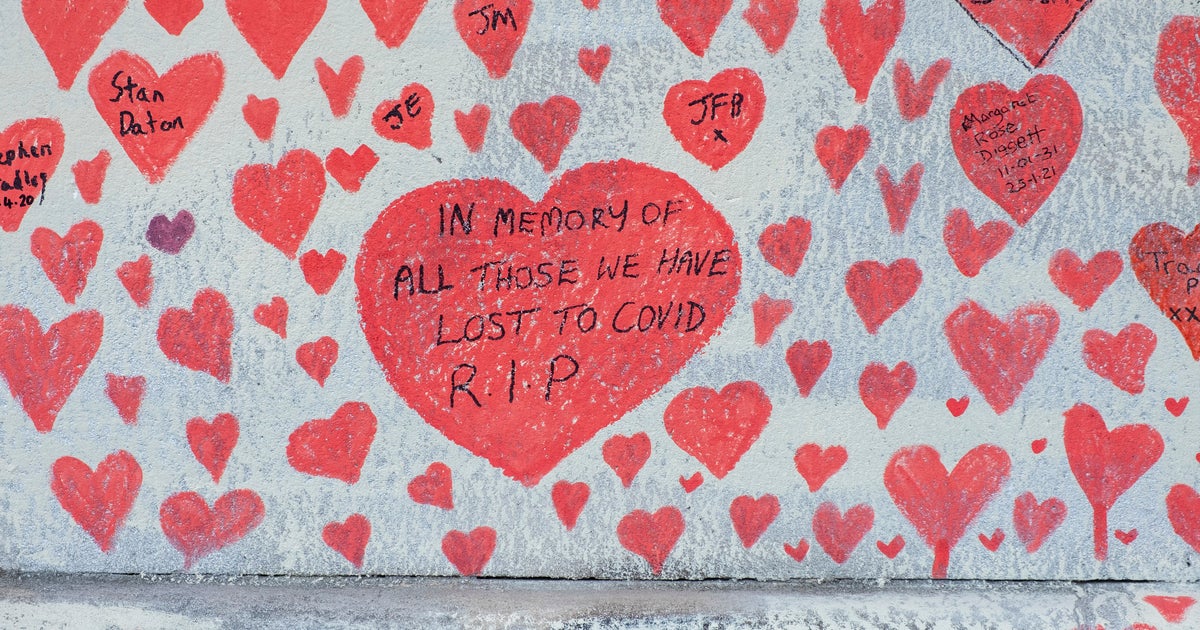 JM
Stan
Daton
JE
JFB
x
Margaret
Rose
Diggett
11-01-31
25-1-21
IN MEMORY OF
ALL THOSE WE HAVE
LOST TO COVID
R.I.P
P
xx